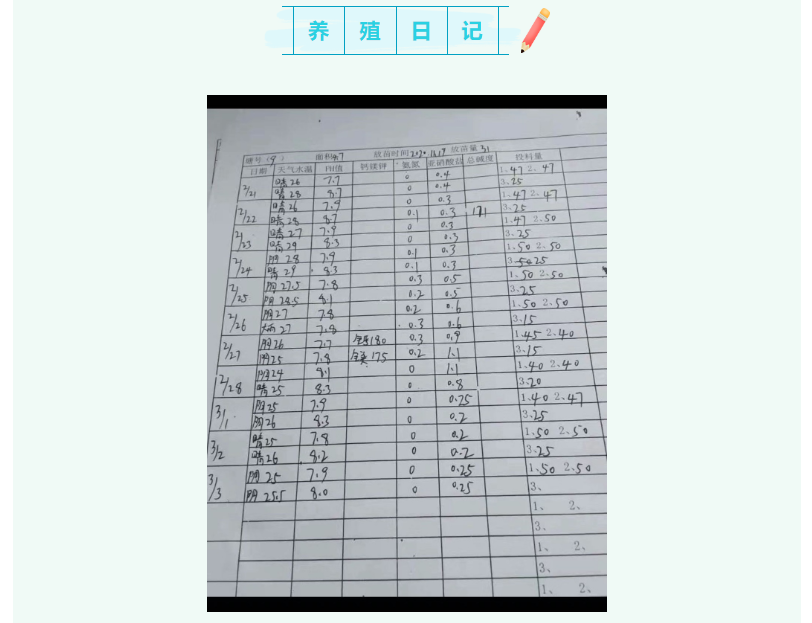 养殖日记
塘号（9） 面积4.7 放苗时间 放苗量31
日期 天气水温 PH值 钙镁钾 氨氮 亚硝酸盐 总碱度 投料量
2/21 晴26 7.7 0 0.4 1、47 2、47
晴28 8.7 0 0.4 3、25
2/22 晴26 7.9 0 0.3 1、47 2、47
晴28 8.7 0.1 0.3 171 3、25
2/23 晴27 7.9 0 0.3 1、47 2、50
晴29 8.3 0 0.3 3、25
2/24 阴28 7.9 0.1 0.3 1、50 2、50
晴29 8.3 0.1 0.3 3、25
2/25 阴27.5 7.8 0.3 0.5 1、50 2、50
阴28.5 8.1 0.2 0.5 3、25
2/26 阴27 7.8 0.2 0.6 1、50 2、50
27 7.8 0.3 0.6 3、15
2/27 阴26 7.7 180 0.3 0.9 1、45 2、40
阴25 7.8 镁175 0.2 1.1 3、15
2/28 阴24 8.1 0 1.1 1、40 2、40
晴25 8.3 0 0.8 3、20
3/1 阴25 7.9 0 0.25 1、40 2、47
阴26 8.3 0 0.2 3、25
3/2 晴25 7.8 0 0.2 1、50 2、50
晴26 8.2 0 0.2 3、25
3/3 阴25 7.9 0 0.25 1、50 2、50
阴25.5 8.0 0 0.25 3、
1、 2、
3、
1、 2、
3、
1、 2、